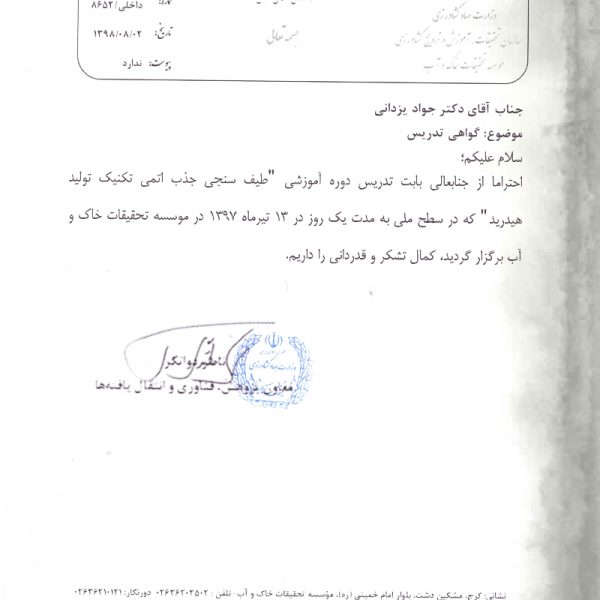 شماره: ۸۶۵۲/داخلی
وزارت جهاد کشاورزی
تاریخ: ۱۳۹۸/۰۸/۰۲
بسمه تعالی
سازمان تحقیقات، آموزش و ترویج کشاورزی
پیوست: ندارد
موسسه تحقیقات خاک و آب
جناب آقای دکتر جواد یزدانی
موضوع: گواهی تدریس
سلام علیکم؛
احتراما از جنابعالی بابت تدریس دوره آموزشی "طیف سنجی جذب اتمی تکنیک تولید
هیدرید" که در سطح ملی به مدت یک روز در ۱۳ تیرماه ۱۳۹۷ در موسسه تحقیقات خاک و
آب برگزار گردید، کمال تشکر و قدردانی را داریم.
معاون پژوهش، فناوری و انتقال یافته‌ها
نشانی: کرج، مشکین دشت، بلوار امام خمینی (ره)، مؤسسه تحقیقات خاک و آب - تلفن: ۰۲۶۳۶۲۰۳۵۰۲ دورنگار: ۰۲۶۳۶۲۱۰۱۲۱